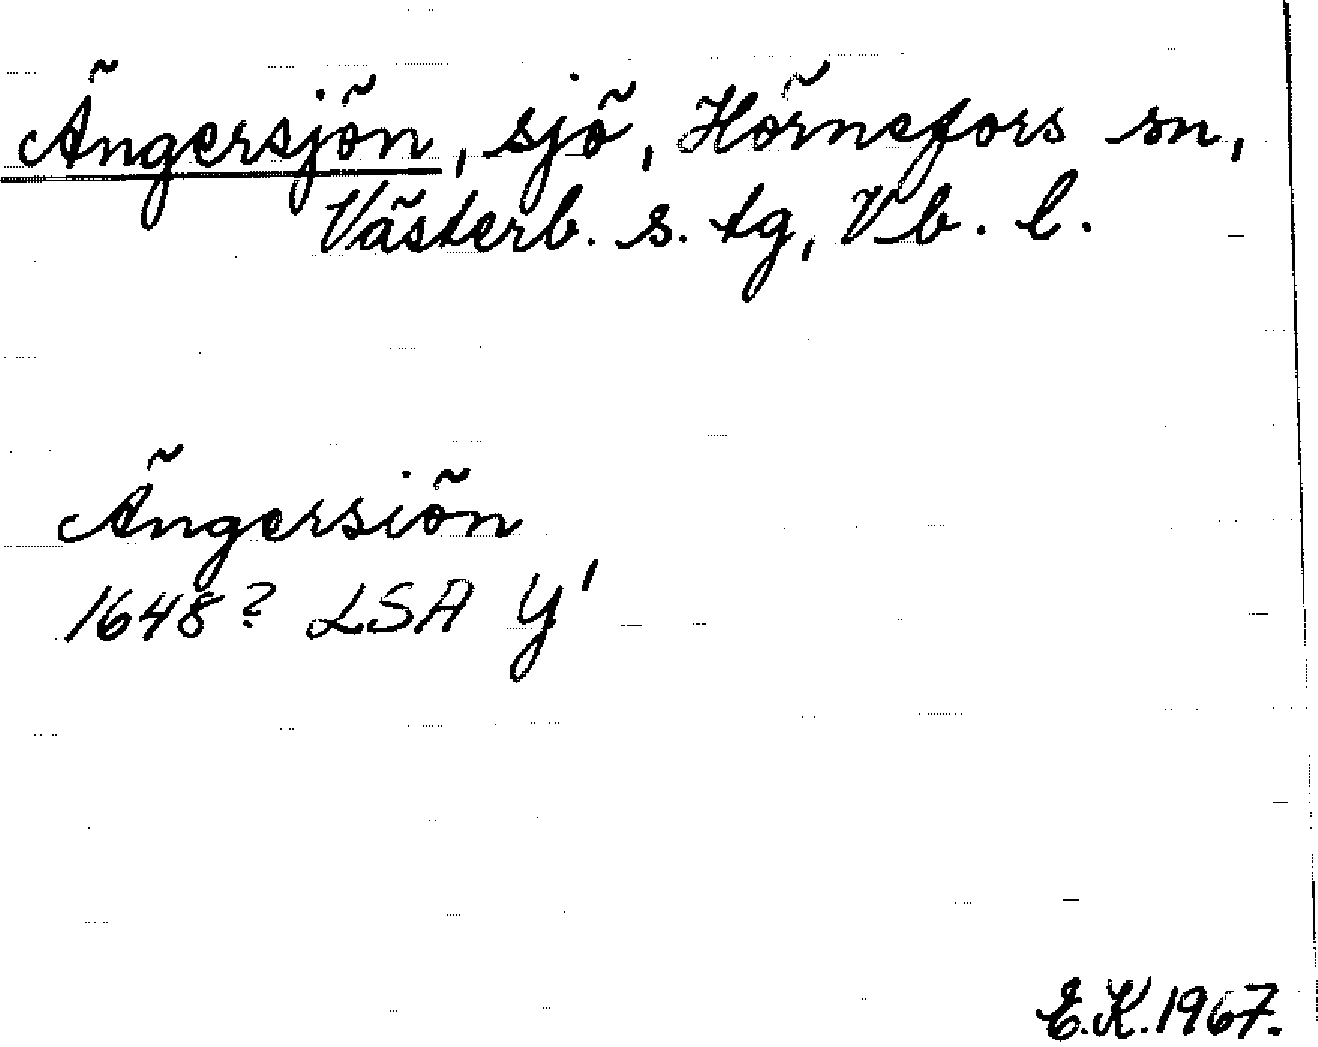 Ängersjön, sjö, Hörnefors sn,
Västerb. s. tg, Vb. l.
Ängersiön
1648? LSA Y'
E.K. 1967.